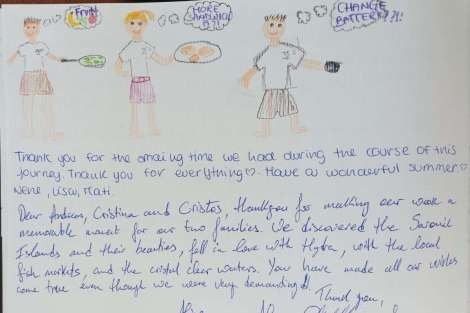 Fruit
MORE
CHANGE
BATTERY?!!
Thank you for the amaing time we had during the course of this
journey. Thank you for everything♡. Have a wonderful summer♡
Nene, Lisa, Mati.
Dear Andreas, Cristina and Cristos, thankyou for making our week a
memorable event for our two families. We discovered the Saronic
Islands and their beauties, fell in love with Hydra, with the local
fish markets, and the cristal clear waters. You have made all our wishes
come true even though we were very demanding!
Thank you,